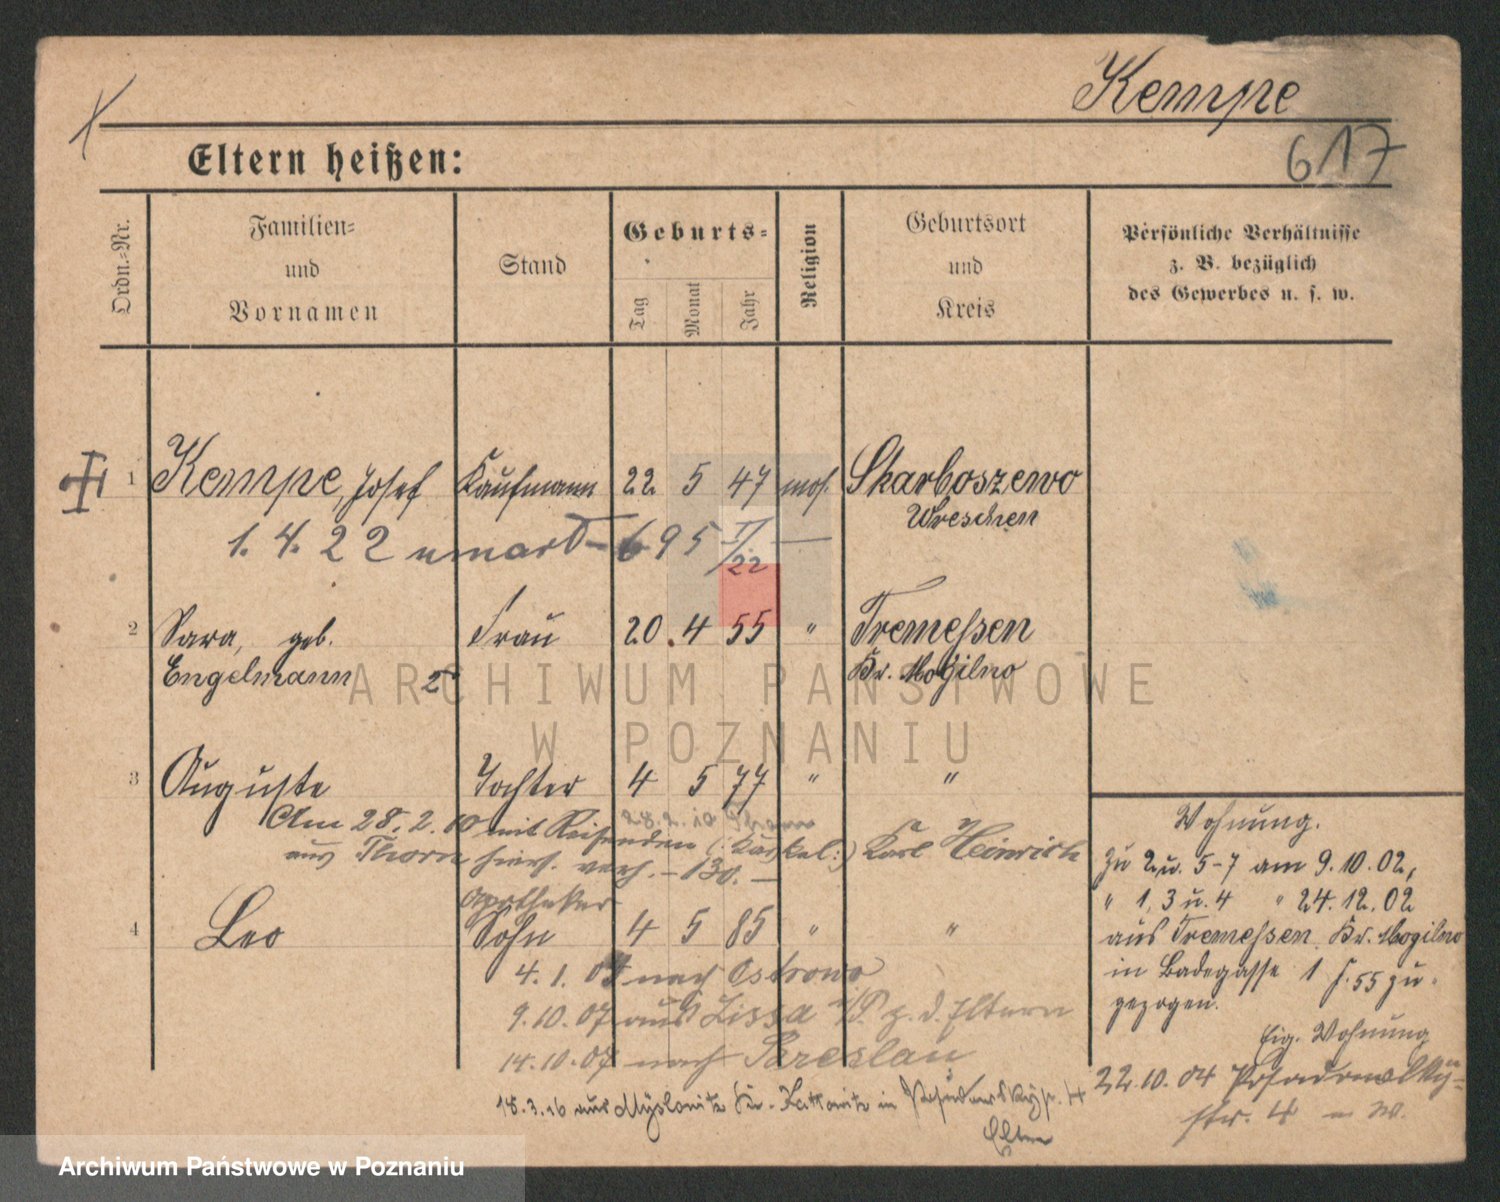 Kempe
617
Eltern heißen:
Ordn.-Nr.
Familien-
und
Vornamen
Stand
Geburts-
Tag
Monat
Jahr
Religion
Geburtsort
und
Kreis
Persönliche Verhältnisse
z. B. bezüglich
des Gewerbes u. s. w.
1 Kempe, Josef Kaufmann 22 5 47 mos. Skarboszewo
Wreschen
1. 4. 22 695 II/22
2 Sara, geb. Frau 20. 4 55 " Tremessen
Engelmann 2 Kr. Mogilno
3 Auguste Tochter 4 5 77 " "
28.2.10 Thorn
Am 28. 2. 10 mit Reisenden Karl Heinrich
aus Thorn hier verh. - 130. -
Apotheker
4 Leo Sohn 4 5 85 " "
4. 1. 07 nach Ostrowo
9.10.07 aus Lissa i/P. z. d. Eltern
14.10.07 nach Breslau
18.3.16 aus Myslowitz Kr. Kattowitz in 4
Eltern
Wohnung.
Zu 2 u. 5-7 am 9.10.02,
" 1, 3 u. 4 " 24.12.02
aus Tremessen Kr. Mogilno
in Badegasse 1 f. 55 zu-
gezogen.
Eig. Wohnung
22.10.04
str. 4
ARCHIWUM PAŃSTWOWE
W POZNANIU
Archiwum Państwowe w Poznaniu